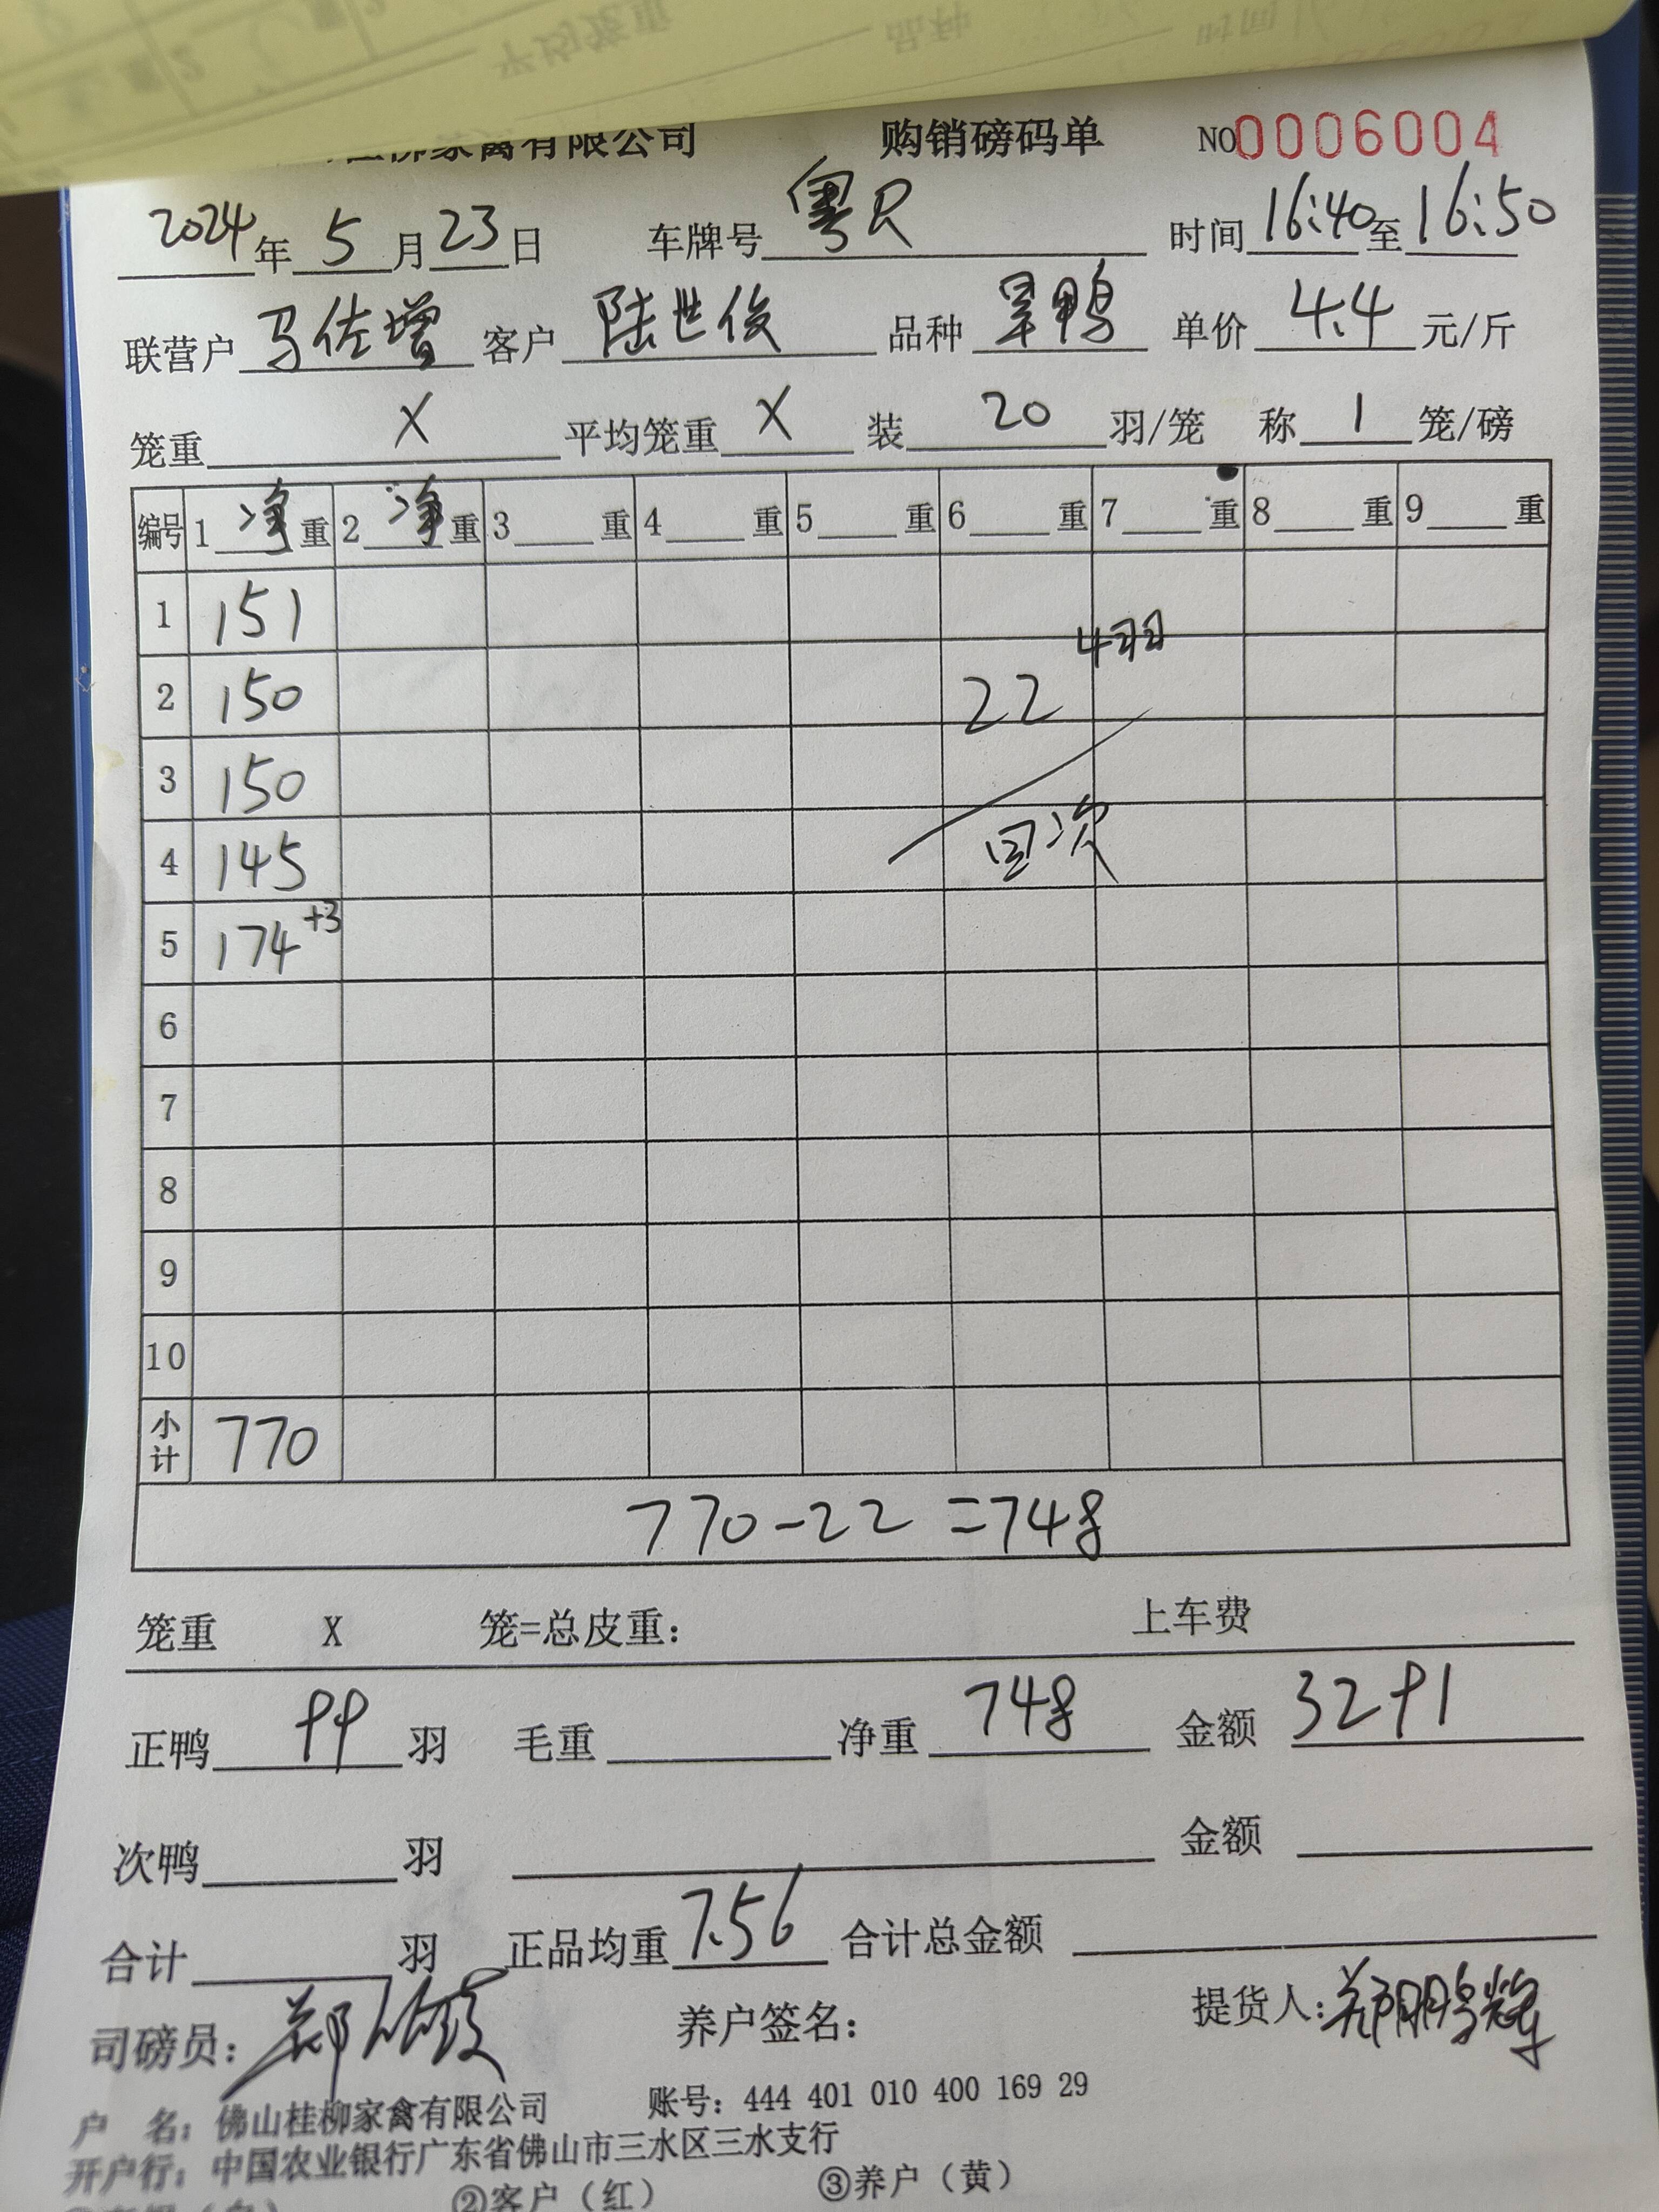 桂柳家禽有限公司 购销磅码单 NO0006004
2024年5月23日 车牌号粤R 时间16:40至16:50
联营户马佐增 客户陆世俊 品种旱鸭 单价4.4元/斤
笼重X平均笼重X 装20羽/笼 称1笼/磅
编号 1净重 2净重 3____重 4____重 5____重 6____重 7____重 8____重 9____重
1 151
4羽
2 150 22
3 150
4 145 回次
5 174+3
6
7
8
9
10
小计 770
770-22=748
笼重 X 笼=总皮重: 上车费
正鸭99羽 毛重____净重748 金额3291
次鸭____羽 ____ 金额____
合计____羽 正品均重7.56 合计总金额____
司磅员: 郑 养户签名: 提货人:郑鹏辉
户 名: 佛山桂柳家禽有限公司 账号: 444 401 010 400 169 29
开户行: 中国农业银行广东省佛山市三水区三水支行
②客户（红） ③养户（黄）